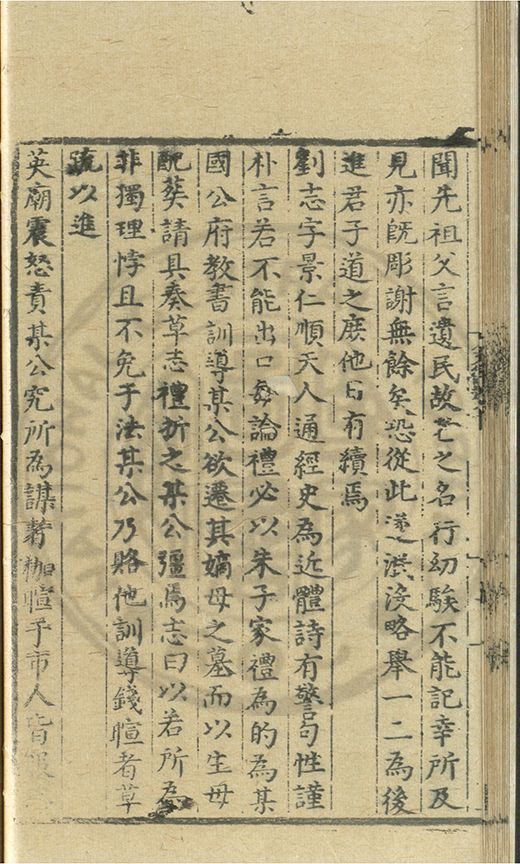 聞先祖父言遺民故老之名行幼騃不能記幸所及
見亦既彫謝無餘矣恐從此遂泯没略舉一二為後
進君子道之庶他日有續焉
劉志字景仁順天人通經史為近體詩有警句性謹
朴言若不能出口每論禮必以朱子家禮為的為某
國公府教書訓導某公欲遷其嫡母之墓而以生母
配葬請具奏草志禮折之某公彊焉志曰以若所為
非獨理悖且不免于法某公乃賂他訓導錢暄者草
疏以進
英廟震怒責某公究所為謀者枷暄于市人皆服